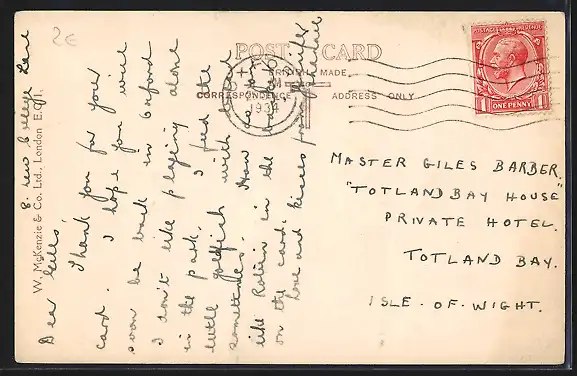 2€
POST CARD
BRITISH MADE.
CORRESPONDENCE
ADDRESS ONLY
1934
POSTAGE REVENUE
1 ONE PENNY 1
W. McKenzie & Co. Ltd., London E.C.1.
8. New College Lane
Dear Giles,
Thank you for your
card. I hope you will
soon be back in Oxford
I don't like playing alone
in the park. I feed the
little goldfish with bread
sometimes. How do you
like Robin in the
on the card?
Love and kisses from
MASTER GILES BARBER.
"TOTLAND BAY HOUSE"
PRIVATE HOTEL.
TOTLAND BAY.
ISLE-OF-WIGHT.